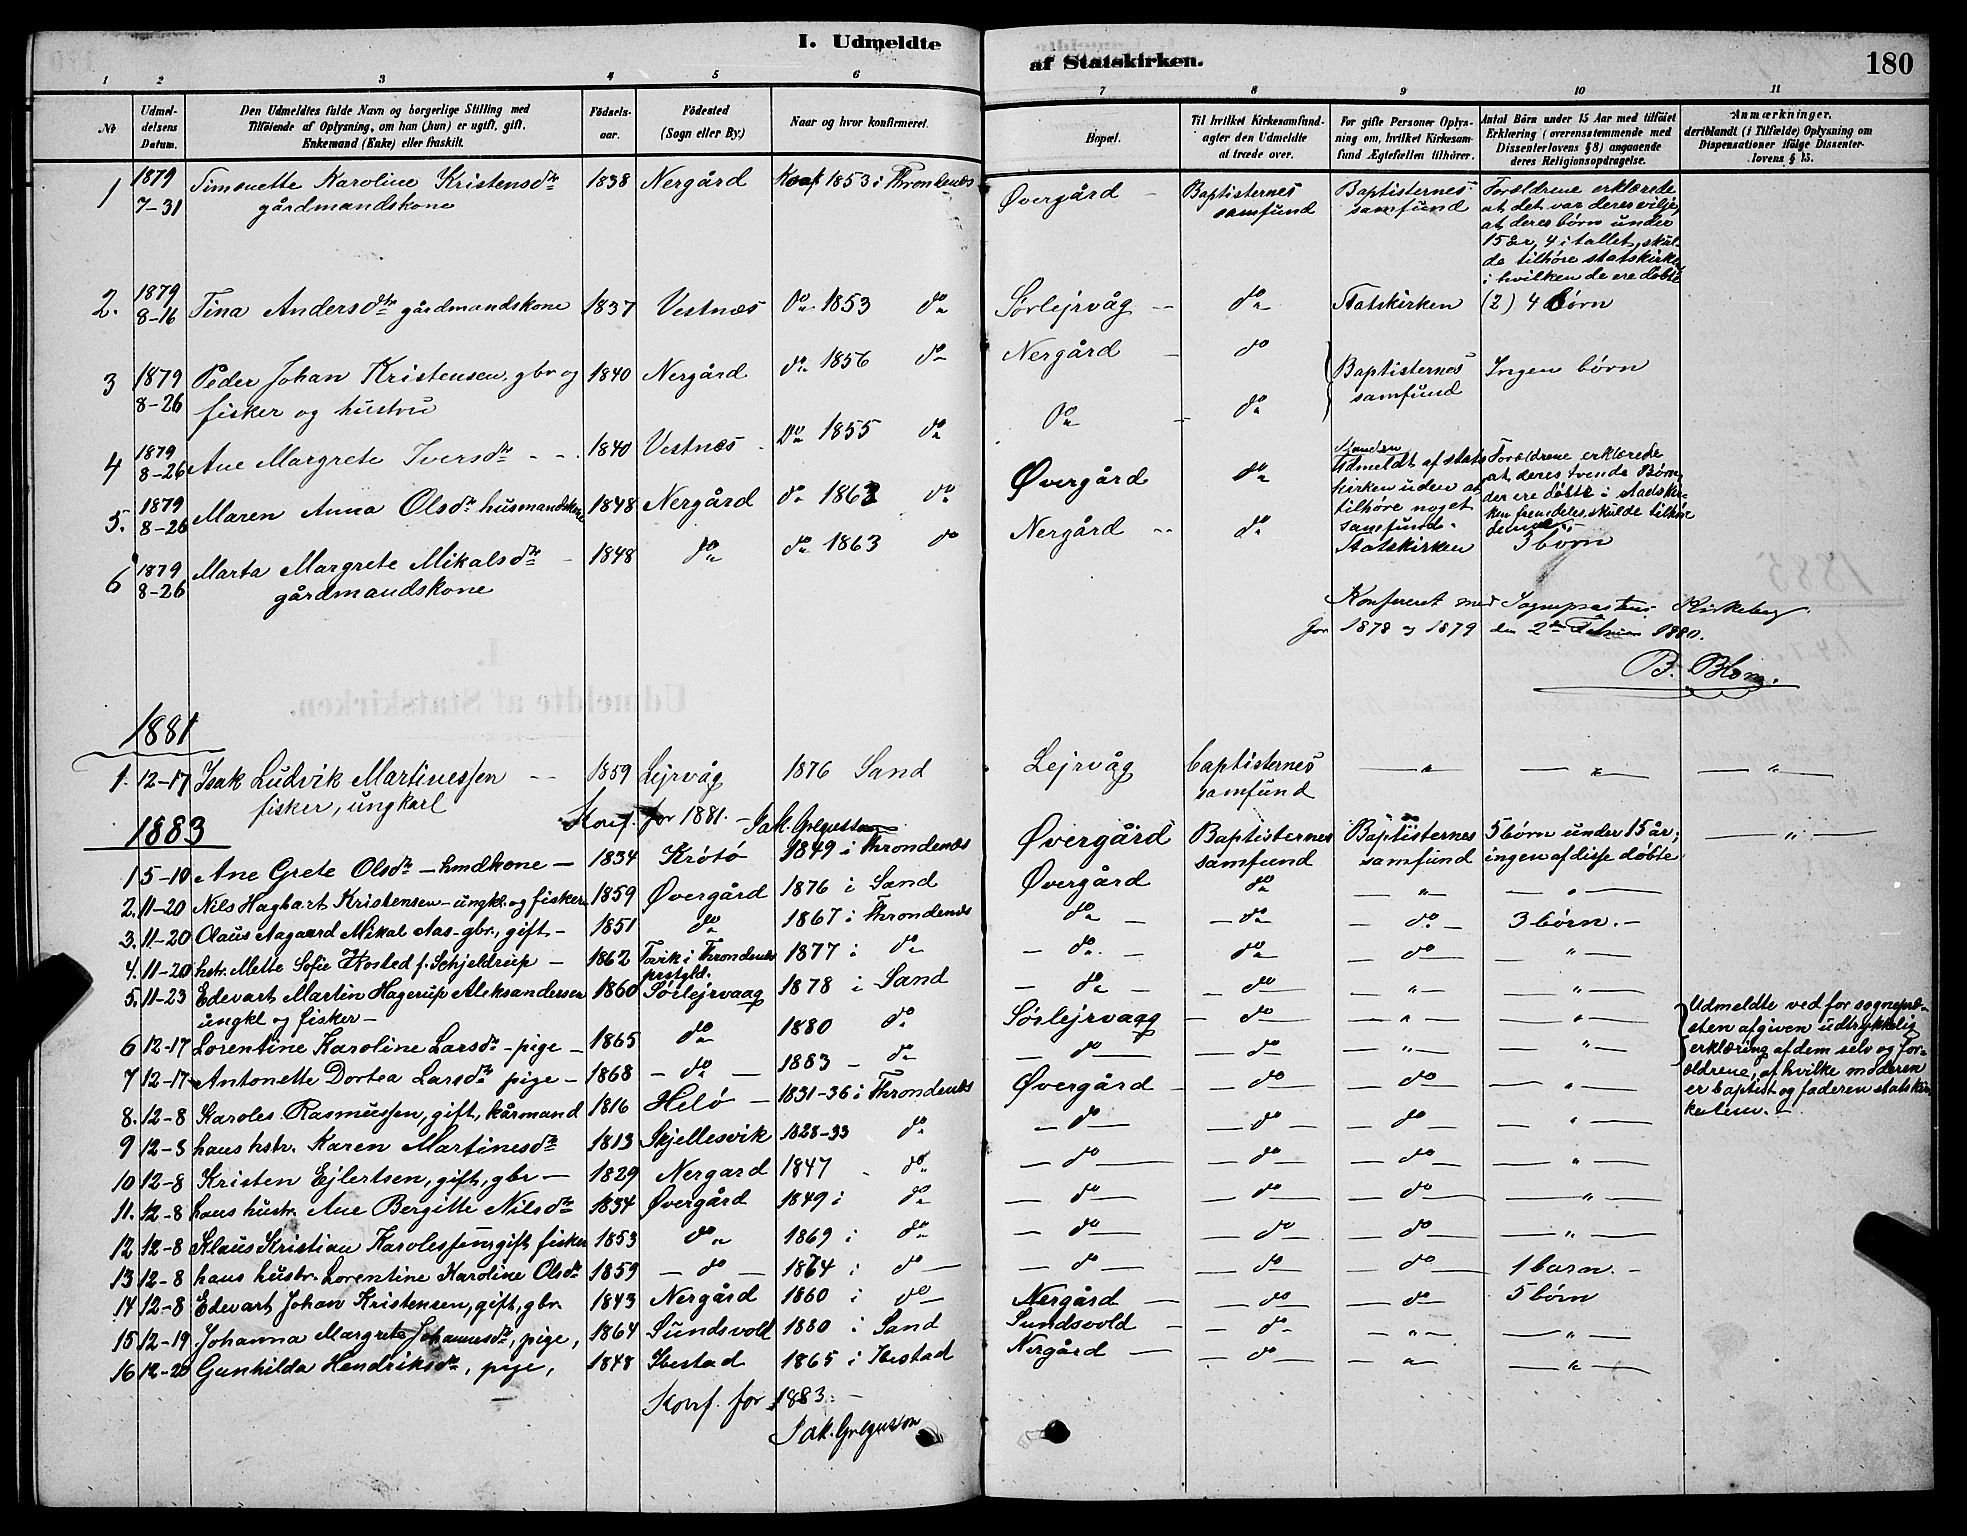 I. Udmeldte
af Statskirken.
180
1 2 3 4 5 6 7 8 9 10 11
№
Udmel-
delsens
Datum.
Den Udmeldtes fulde Navn og borgerlige Stilling med
Tilføiende af Oplysning, om han (hun) er ugift, gift,
Enkemand (Enke) eller fraskilt.
Fødsels-
aar.
Fødested
(Sogn eller By.)
Naar og hvor konfirmeret.
Bopæl.
Til hvilket Kirkesamfund
agter den Udmeldte
at træde over.
For gifte Personer Oplys-
ning om, hvilket Kirkesam-
fund Ægtefællen tilhører.
Antal Børn under 15 Aar med tilføiet
Erklæring (overensstemmende med
Dissenterlovens § 8) angaaende
deres Religionsopdragelse.
Anmærkninger,
deriblandt (i Tilfælde) Oplysning om
Dispensationer ifølge Dissenter-
lovens § 15.
1 1879 7-31 Simonette Karoline Kristensdtr gårdmandskone 1838 Nergård Konf 1853 i Throndenes Øvergård - Baptisternes samfund Baptisternes samfund
Forældrene erklærede
at det var deres vilje,
at deres børn under
15 år, 4 i tallet, skul-
de tilhøre statskirke
i hvilken de ere døbte
2. 1879 8-16 Tina Andersdtr gårdmandskone 1837 Vestnæs Do 1853 do Sørlejrvåg - do Statskirken (2) 4 børn
3 1879 8-26 Peder Johan Kristensen, gbr og fisker og hustru 1840 Nergård do 1856 do Nergård - do Baptisternes samfund Ingen børn
4 1879 8-26 Ane Margrete Iversdtr - - 1840 Vestnæs - Do 1855 do Do - do
5. 1879 8-26 Maren Anna Olsdtr husmandskone 1848 Nergård do 1862 do Øvergård do
Manden
Udmeldt af stats
kirken uden at
tilhøre noget
samfund.
Forældrene erklærede
at deres tvende Børn
der ere døbte i stadskir-
ken fremdeles skulde tilhøre
denne.
6 1879 8-26 Marta Margrete Mikalsdtr - gårdmandskone 1848 do do 1863 do Nergård - - do Statskirken 3 børn
Konfereret med Sognepræstens Kirkebog
for 1878 og 1879 den 2den Februar 1880.
B. Blom.
1881
1. 12-17 Isak Ludvik Martinessen - - fisker, ungkarl 1859 Lejrvåg 1876 Sand Lejrvåg baptisternes samfund — " — — " — — " —
Konf. for 1881. - Jak. Gregusson
1883
1 5-10 Ane Grete Olsdtr - hmdkone - 1834 Krøtø 1849 i Throndenes Øvergård Baptisternes samfund Baptisternes samfund 5 børn under 15 år; ingen af disse døbte — " —
2. 11-20 Nils Hagbart Kristensen - ungkl. og fisker 1859 Øvergård 1876 i Sand Øvergård do - " - - " -
3. 11-20 Olaus Aagaard Mikal Aas - gbr., gift - 1851 do 1867 i Throndenes do - - do - - do - 3 børn. -
4. 11-20 hstr. Mette Sofie Hosted f. Schjeldrup - 1862 Torvik i Throndenes prstgld. 1877 i do - do - do - - do - "
5. 11-23 Edevart Martin Hagerup Aleksandersen ungkl og fisker - 1860 Sörlejrvaag 1878 i Sand - do - - do - - " - - " -
6 12-17 Lorentine Karoline Larsdtr - pige - 1865 do 1880 do Sörlejrvaag - do - - " - - " -
7 12-17 Antonette Dortea Larsdtr pige - 1868 - do - 1883 - do - do - - do - - " - - " -
Udmeldte ved for sognepræ-
sten afgiven udtrykkelig
erklæring af dem selv og for-
ældrene, af hvilke moderen
er baptist og faderen statskir
kelem. -
8. 12-8 Karoles Rasmussen, gift, kårmand 1816 Helø - 1831-36 i Throndenes Øvergård - - do - - do - - " -
9 12-8 hans hstr. Karen Martinesdtr 1813 Skjellesvik 1828-33 do - do - - do - - do - - " -
10 12-8 Kristen Ejlertsen, gift, gbr - 1829 Nergard 1847 - do - do - - do - - do - - " -
11. 12-8 hans hustr. Ane Bergitte Nilsdtr 1834 Øvergård 1849 i do - do - - do - - do - - " -
12 12-8 Klaus Kristian Karolessen gift fisker 1853 do 1869 i do - do - - do - - do - - " -
13 12-8 hans hustr. Lorentine Karoline Olsdtr 1859 - do - 1864 i do - - do - - do - - do - 1 barn. -
14 12-8 Edevart Johan Kristensen, gift, gbr. 1843 Nergård 1860 i do Nergård - - do - - do - 5 børn
15 12-19 Johanna Margrete Johannesdtr, pige, 1864 Sundsvold 1880 i Sand Sundsvold - - do - - " - - " -
16 12-20 Gunhilda Hendriksdtr, pige, 1848 Ibestad 1865 i Ibestad Nergård - - do - - " - - " -
Konf. for 1883. -
Jak. Gregusson